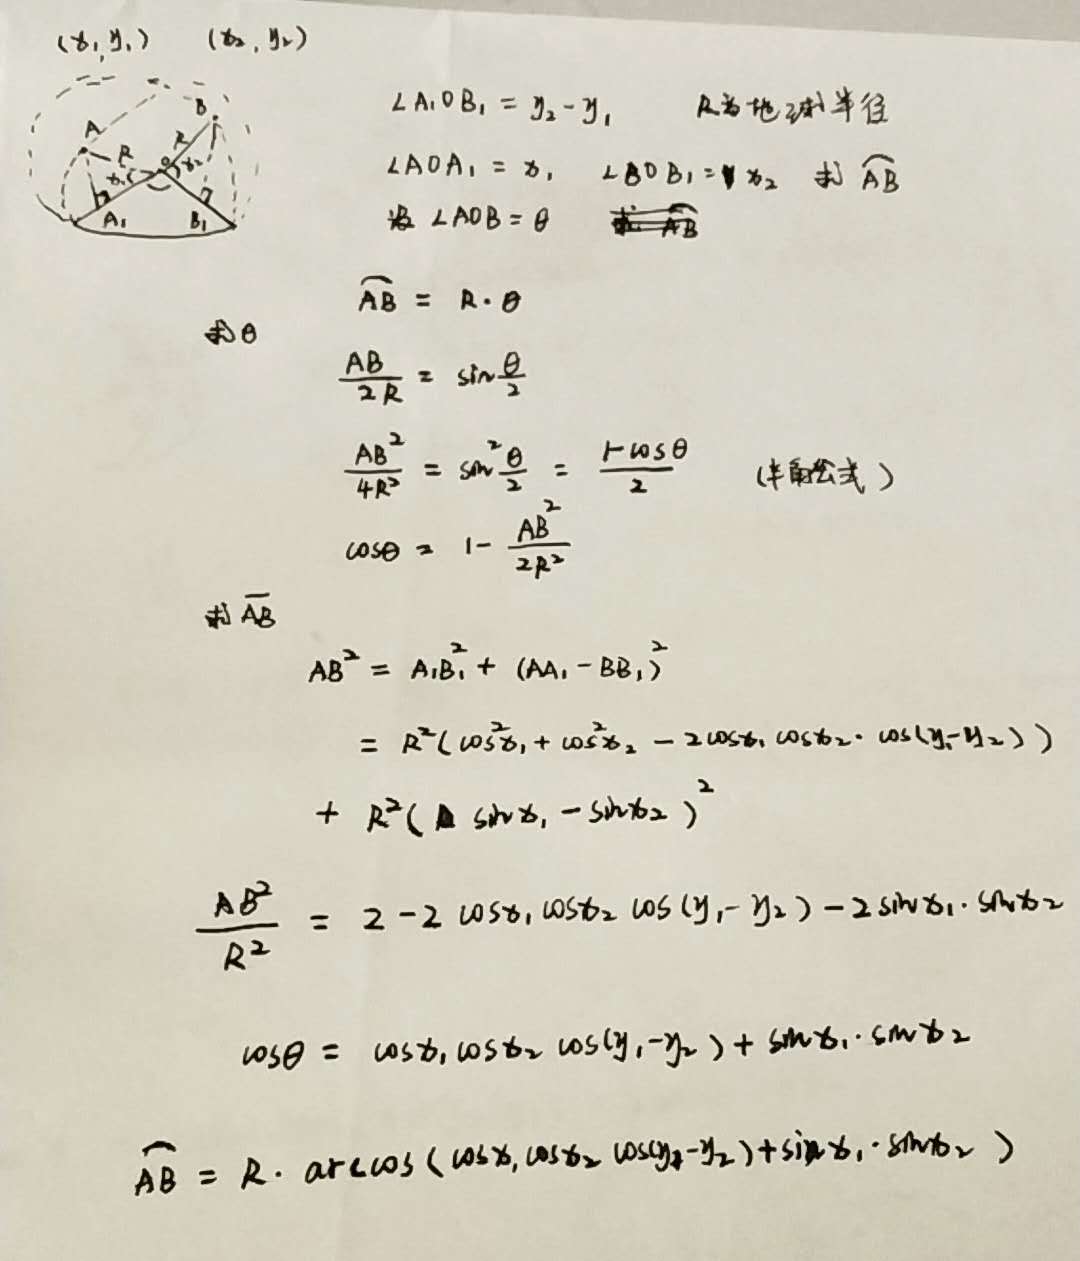 (x₁, y₁) (x₂, y₂)
A B R R x₁ O x₂ A₁ B₁
∠A₁OB₁ = y₂-y₁ R为地球半径
∠AOA₁ = x₁ ∠BOB₁ = x₂ 求 ⌒AB
设 ∠AOB = θ
⌒AB = R·θ
求θ
AB/2R = sin θ/2
AB²/4R² = sin² θ/2 = (1-cosθ)/2 (半角公式)
cosθ = 1 - AB²/2R²
求 A̅B̅
AB² = A₁B₁² + (AA₁ - BB₁)²
= R²(cos²x₁ + cos²x₂ - 2cosx₁ cosx₂·cos(y₁-y₂))
+ R²(sinx₁ - sinx₂)²
AB²/R² = 2 - 2 cosx₁ cosx₂ cos(y₁-y₂) - 2sinx₁·sinx₂
cosθ = cosx₁ cosx₂ cos(y₁-y₂) + sinx₁·sinx₂
⌒AB = R·arccos(cosx₁ cosx₂ cos(y₁-y₂)+sinx₁·sinx₂)